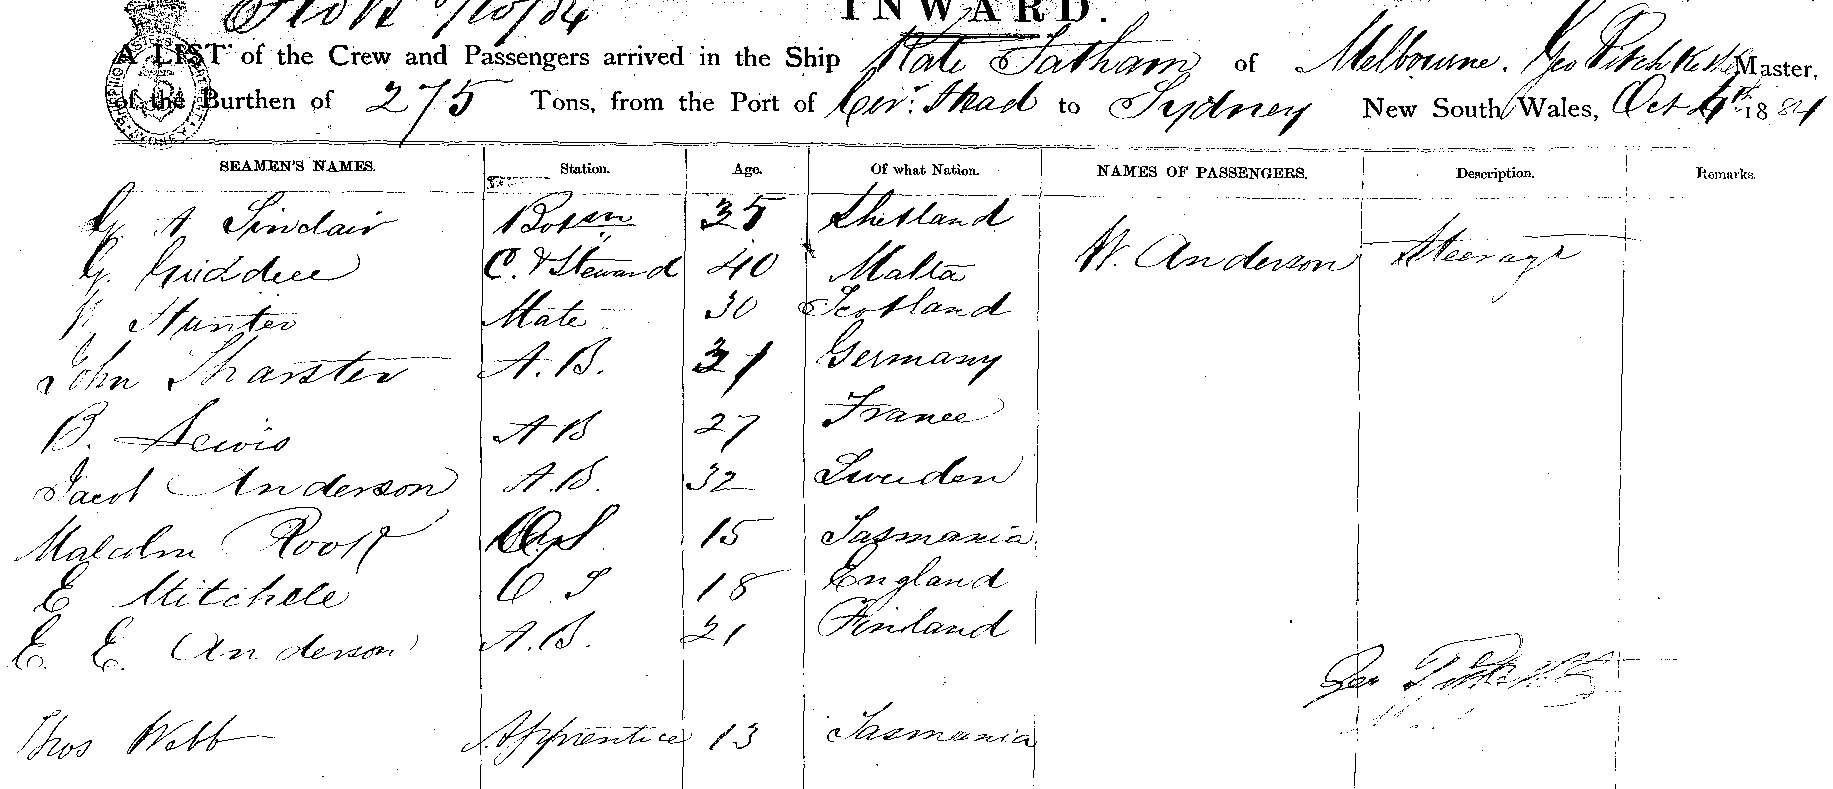 INWARD.
A LIST of the Crew and Passengers arrived in the Ship Kate Tatham of Melbourne. Geo Master,
of the Burthen of 275 Tons, from the Port of Head to Sydney New South Wales, Oct 1884
SEAMEN'S NAMES. Station. Age. Of what Nation. NAMES OF PASSENGERS. Description. Remarks.
A Sinclair Bosun 35 Shetland
G. C. & Steward 40 Malta W. Anderson Steerage
Hunter Mate 30 Scotland
John A.B. Germany
B. Lewis A B 27 France
Jacob Anderson A.B. 32 Sweden
Malcolm Rook 15 Tasmania
E Mitchell O S 18 England
E. E. Anderson A.B. 21 Finland
Geo
Thos Webb Apprentice 13 Tasmania